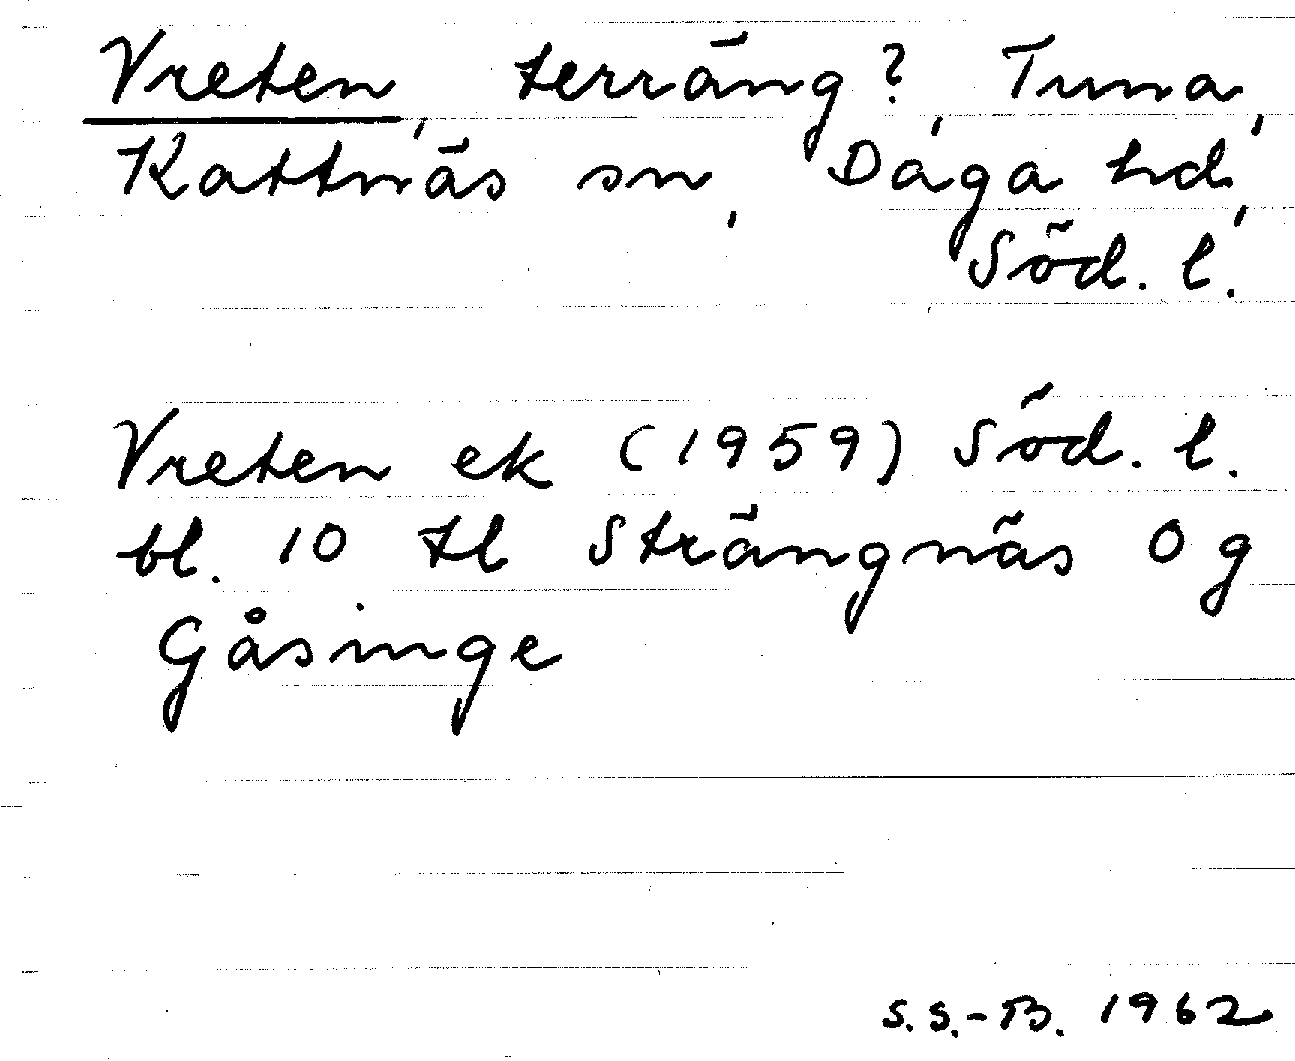 Vreten, terräng?, Tuna,
Kattnäs sn, Daga hd,
Söd. l.
Vreten ek (1959) Söd. l.
bl. 10 tl Strängnäs o g
Gåsinge
S.S.-B. 1962